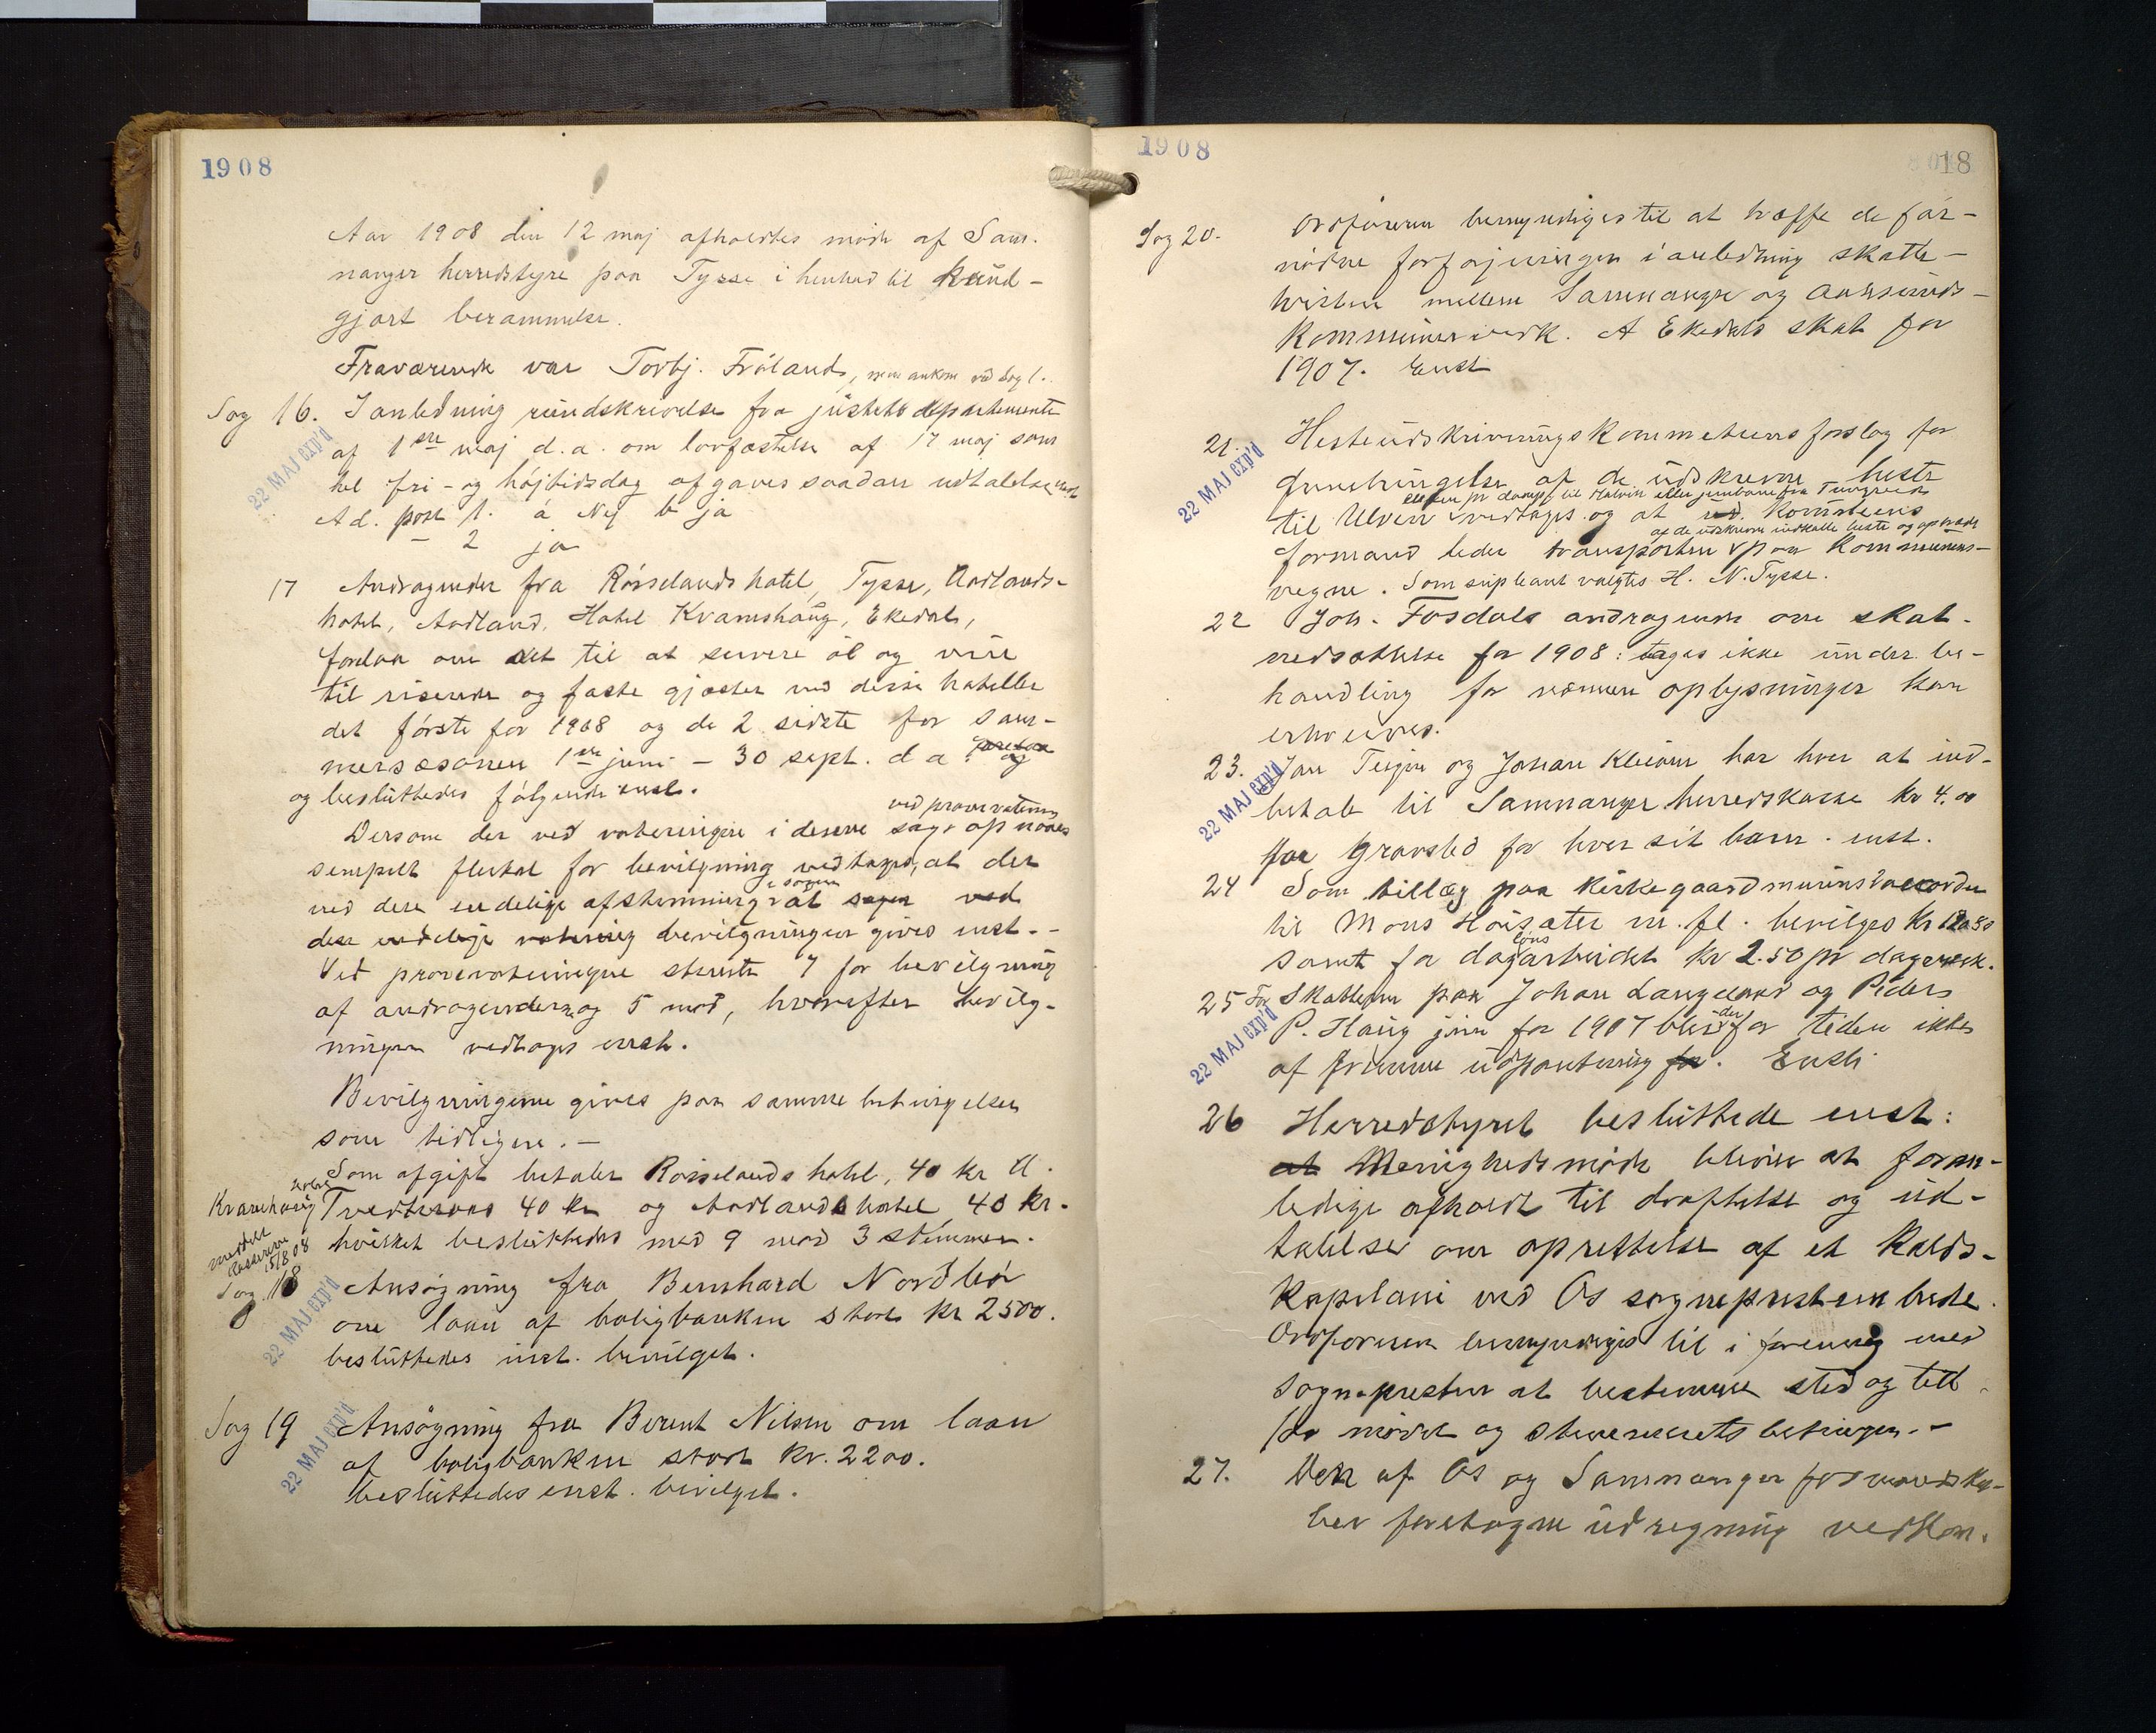 1908
Aar 1908 den 12 maj afholdtes møde af Sam-
nanger herredstyre paa Tysse i henhold til kund-
gjort berammelse.
Fraværende var Torbj. Frøland, som ankom ved sag 1.
Sag 16. I anledning rundskrivelse fra justits departementet
22 MAJ exp'd
af 1ste maj d.a. om lovfæstelse af 17 maj som
hel fri- og højtidsdag afgaves saadan udtalelse enst
Ad. post 1. a Nej b ja
— 2 ja
17 Andragender fra Rösselands hotel, Tysse, Aadlands-
hotel, Aadland, Hotel Kvamshaug, Ekedal,
om ret til at servere øl og vin
til reisende og faste gjæster ved disse hoteller
det første for 1908 og de 2 sidste for som-
mersæsonen 1ste juni – 30 sept. d a
og besluttedes følgende enst.
Dersom der ved voteringen i denne sag ved prøvevotering opnaaes
simpelt flertal for bevilgning vedtages, at der
ved den endelige afstemning i sagen at sagen ved
den endelige votering bevilgningen gives enst. -
Ved prøvevoteringen stemte 7 for bevilgning
af andragenderne og 5 mod, hvorefter bevilg-
ningen vedtages enst.
Bevilgningerne gives paa samme betingelser
som tidligere. –
Som afgift betaler Rösselands hotel, 40 kr
Kvamshaug hotel 40 kr og Aadlands hotel 40 kr.
hvilket besluttedes med 9 mod 3 stemmer.
meddelt
15/8 08
Sag 18 Ansøgning fra Bernhard Nordbø
22 MAJ exp'd
om laan af boligbanken stort kr 2500.
besluttedes enst. bevilget.
Sag 19 Ansøgning fra Berent Nilsen om laan
22 MAJ exp'd
af boligbanken stort kr. 2200.
besluttedes enst. bevilget.
1908
18
Sag 20. Ordføreren bemyndiges til at træffe de for-
nødne forføjninger i anledning skatte-
tvisten mellem Samnanger og
kommuner vedk. A Ekedals skat for
1907. Enst
21. Hesteudskrivningskommissionens forslag for
22 MAJ exp'd
af de udskrevne heste
til Ulven vedtages og at kommissionens
af de udskrevne indkalle heste og
formand leder transporten paa kommunens-
vegne. Som supleant valgtes H. N. Tysse.
22 Joh. Fosdals andragende om skat-
nedsættelse for 1908: tages ikke under be-
handling før nærmere oplysninger kan
erhverves.
23. Jan Teigen og Johan har hver at ind-
22 MAJ exp'd
betale til Samnanger herredskasse kr 4.00
for gravsted for hver sit barn. enst.
24 Som tillæg paa kirkegaardmurens akkorden
til Mons Høisæter m. fl. bevilges kr
samt for dagløns arbeidet kr 2.50 pr dagsverk.
25 For Skatten paa Johan Langeland og Peders
22 MAJ exp'd
P. Haug jun for 1907 blir der for tiden ikke
at fremme udpantning for. Enst.
26 Herredstyret besluttede enst:
at Menighedsmøde bliver at foran-
ledige afholdt til drøftelse og ud-
talelse om oprettelse af et kalds-
kapelani ved Os sogneprestembede.
Ordføreren bemyndiges til i forening med
sognepresten at bestemme sted og tid
for mødet og stemmeretsbetingen. –
27. Den af Os og Samnanger formandska-
ber foretagne udregning vedkom-